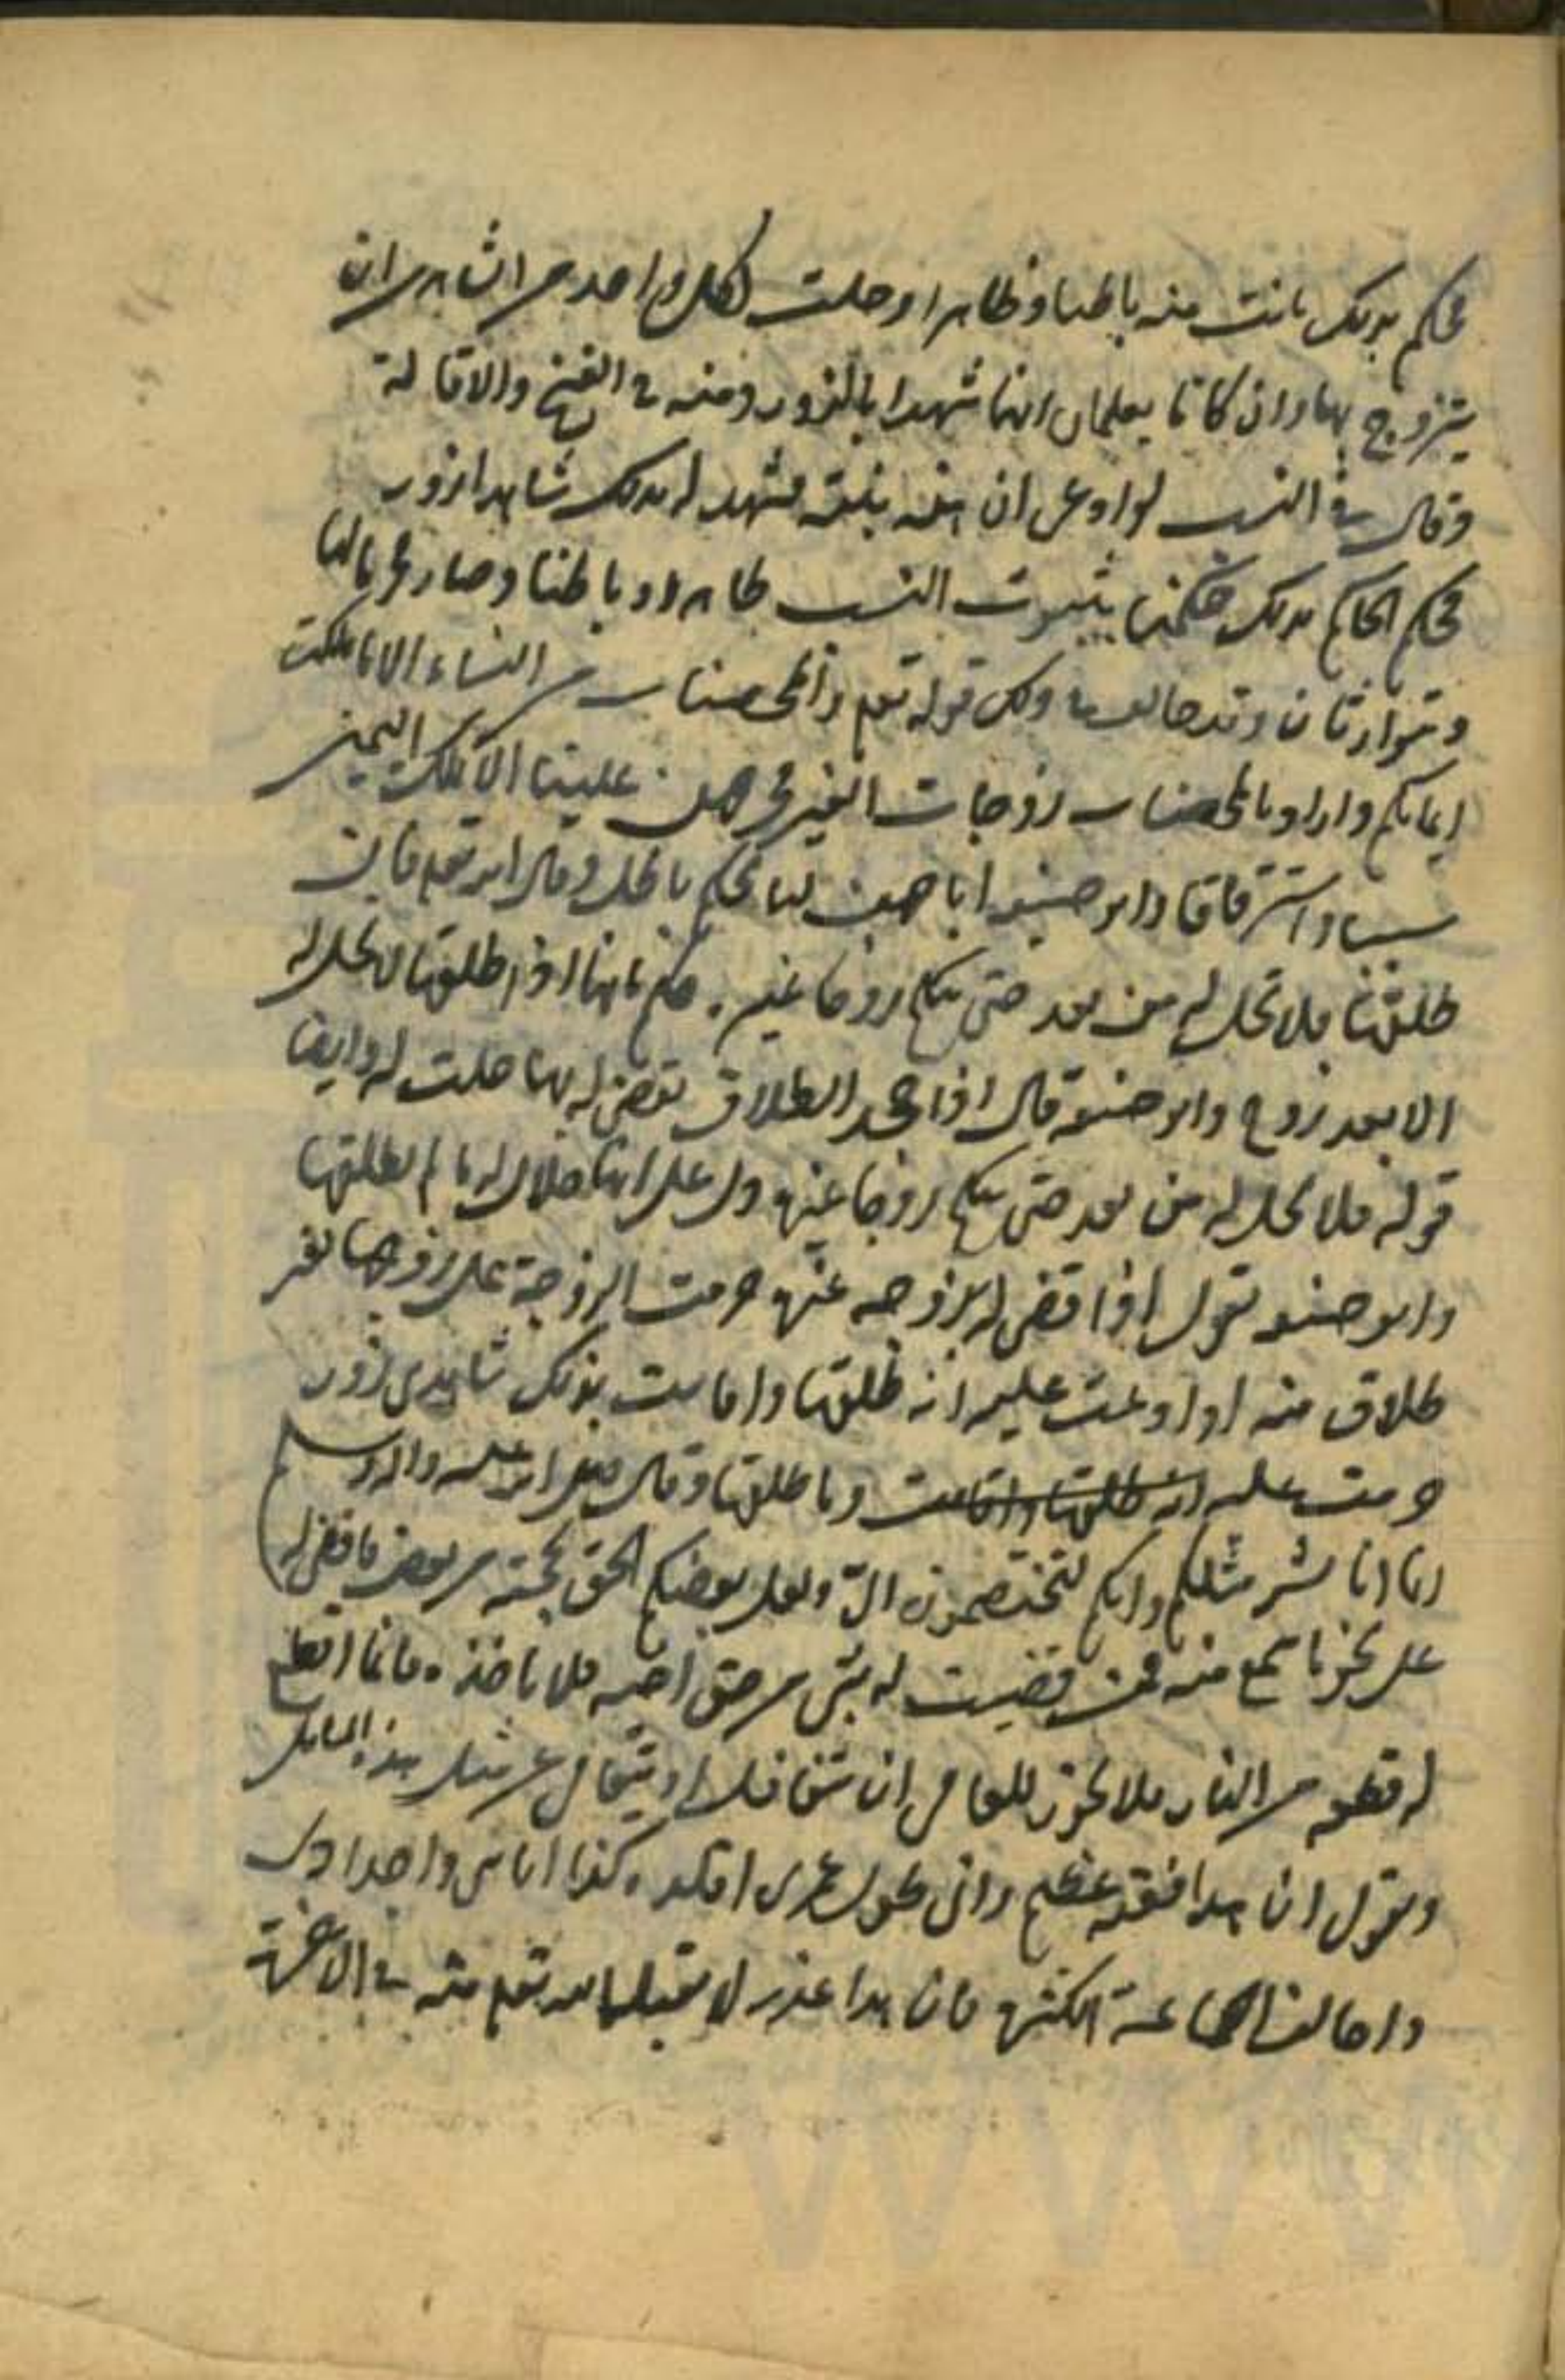 فحكم بذلك بانت منه باطنا وظاهرا وحلت لكل واحد من الشاهدين ان
يتزوج بها وان كانا يعلمان انهما شهدا بالزور ومنه في الفسخ والاقالة
وقال في النسب لو ادعى ان هذه بنته فشهد له بذلك شاهدا زور
فحكم الحاكم بذلك حكمنا بثبوت النسب ظاهرا وباطنا وصار محرما لها
ويتوارثان وقد خالف في ذلك قوله تعم والمحصنات من النساء الا ما ملكت
ايمانكم واراد بالمحصنات زوجات الغير فحرمهن علينا الا بملك اليمين
سبيا واسترقاقا وابو حنيفه اباحهن لنا بحكم باطل وقال الله تعم فان
طلقها فلا تحل له من بعد حتى تنكح زوجا غيره فحكم بانها اذا طلقها لا تحل له
الا بعد زوج وابو حنيفة قال اذا جحد الطلاق فقضى له بها حلت له وايضا
قوله فلا تحل له من بعد حتى تنكح زوجا غيره دل على انها حلال له ما لم يطلقها
وابو حنيفه يقول اذا قضى له بزوجه غيره حرمت الزوجة على زوجها بغير
طلاق منه او ادعت عليه انه طلقها واقامت بذلك شاهدى زور
حرمت عليه انه طلقها واقامت وما طلقها وقال صلى الله عليه واله وسلم
انما انا بشر مثلكم وانكم لتختصمون الىّ ولعل بعضكم الحن بحجته من بعض فاقضى له
على نحو ما اسمع منه فمن قضيت له بشئ من حق اخيه فلا ياخذه فانما اقطع
له قطعه من النار فلا يجوز للعامى ان يتغافل او يتجاهل عن مثل هذه المسايل
ويقول ان هذا فقيه عظيم وانى طول عمرى اقلده وكذا اناسى واجدادى
واخالف الجماعة الكثيره فان هذا عذر لا يقبل الله تعم منه في الاخرة